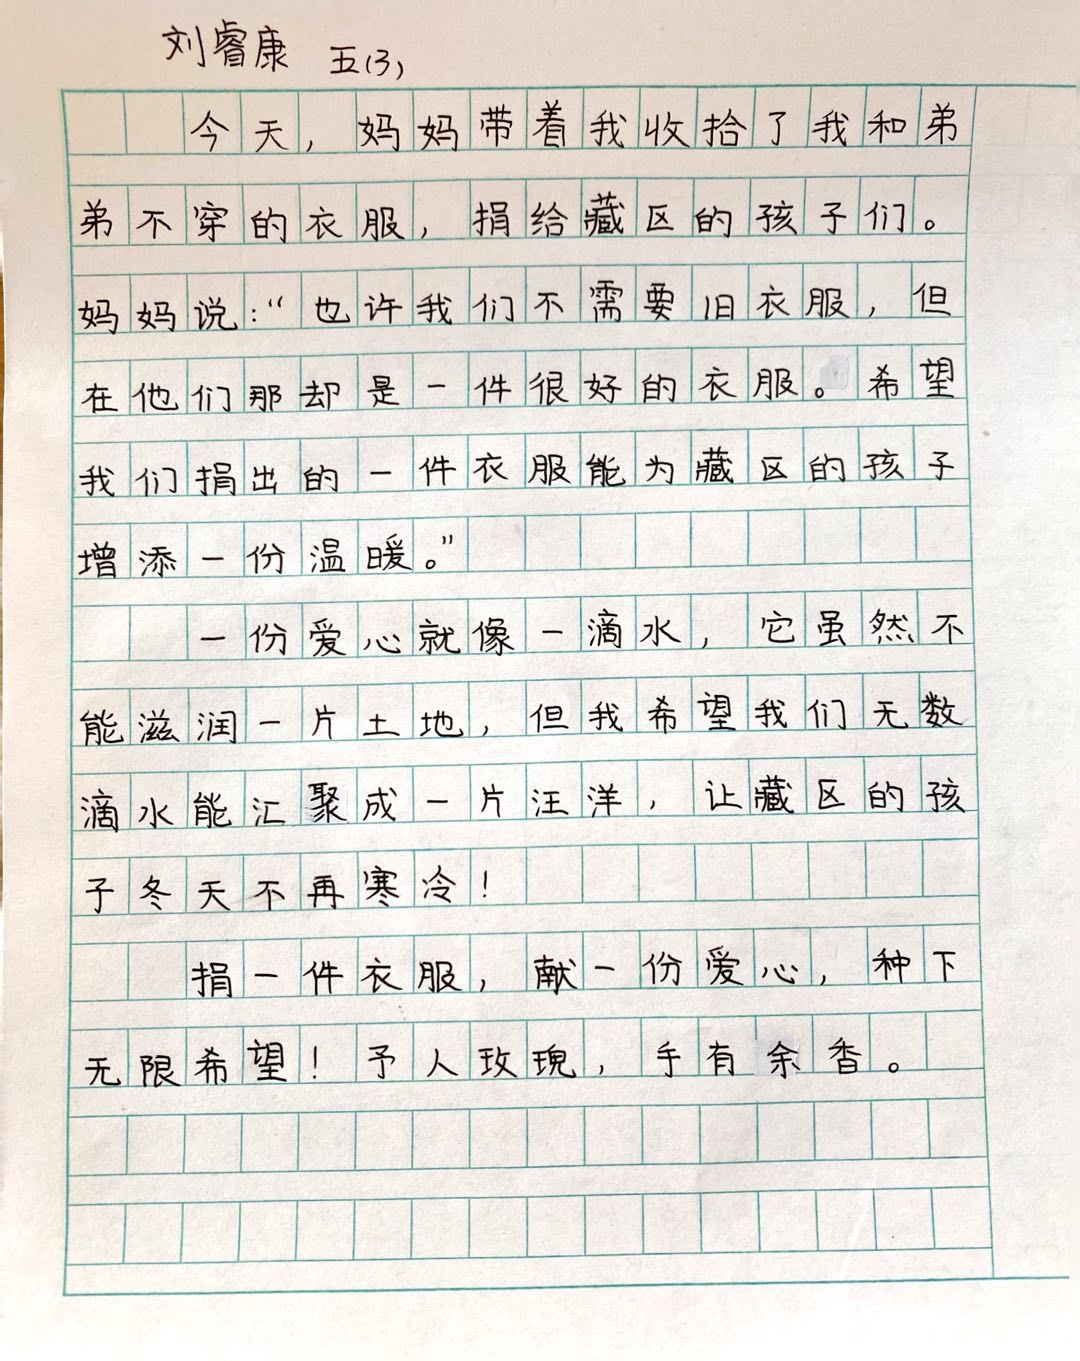 刘睿康 五(3)
今天，妈妈带着我收拾了我和弟
弟不穿的衣服，捐给藏区的孩子们。
妈妈说：“也许我们不需要旧衣服，但
在他们那却是一件很好的衣服。希望
我们捐出的一件衣服能为藏区的孩子
增添一份温暖。”
一份爱心就像一滴水，它虽然不
能滋润一片土地，但我希望我们无数
滴水能汇聚成一片汪洋，让藏区的孩
子冬天不再寒冷！
捐一件衣服，献一份爱心，种下
无限希望！予人玫瑰，手有余香。